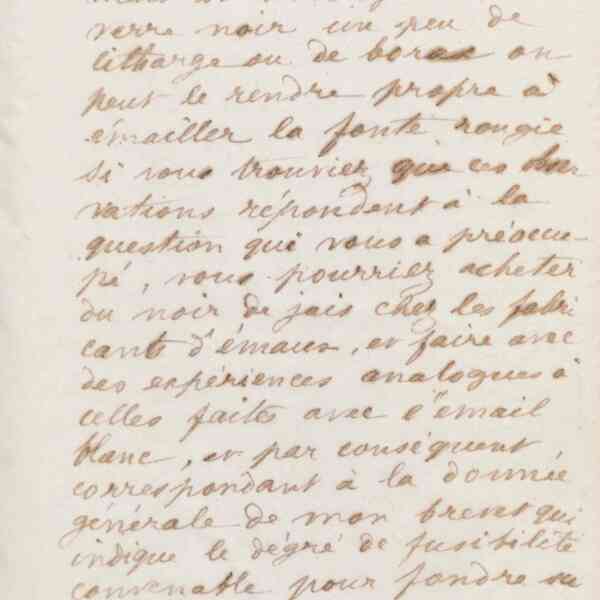 verre noir un peu de
litharge ou de borax on
peut le rendre propre à
émailler la fonte rougie
si vous trouviez que ces obser
vations répondent à la
question qui vous a préoccu-
pé, vous pourriez acheter
du noir de jais chez les fabri
cants d'émaux, et faire avec
des expériences analogues à
celles faites avec l'émail
blanc, et par conséquent
correspondant à la donnée
générale de mon brevet qui
indique le dégré de fusibilité
convenable pour fondre